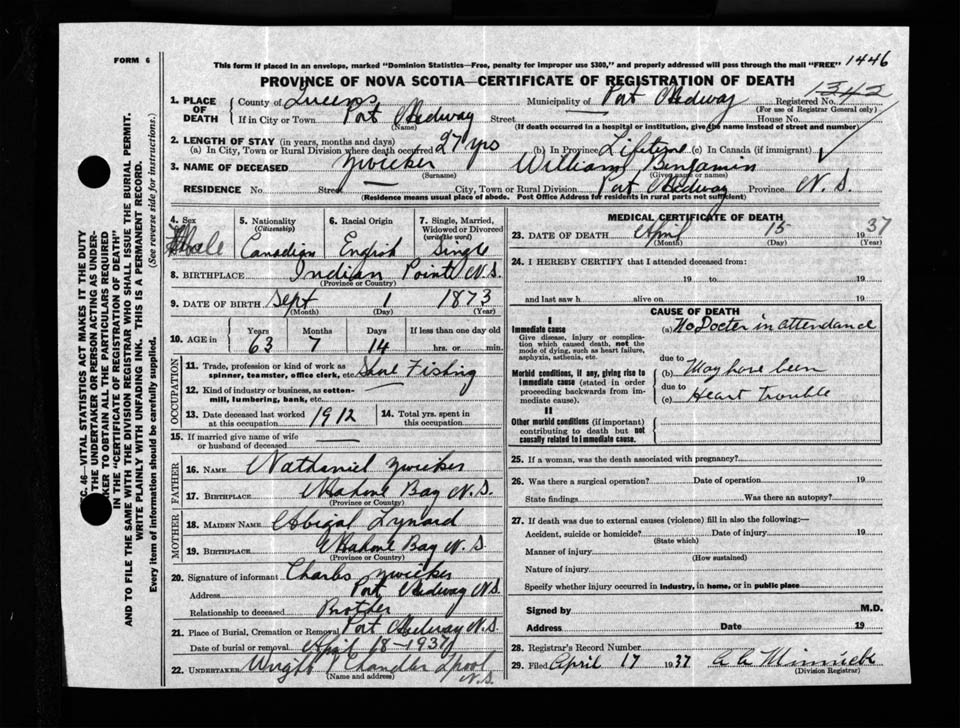 FORM 6
This form if placed in an envelope, marked "Dominion Statistics—Free, penalty for improper use $300," and properly addressed will pass through the mail "FREE" 1446
PROVINCE OF NOVA SCOTIA—CERTIFICATE OF REGISTRATION OF DEATH
1. PLACE OF DEATH County of Queens Municipality of Port Medway Registered No. 1342
(For use of Registrar General only)
If in City or Town Port Medway Street House No.
(Name) (If death occurred in a hospital or institution, give the name instead of street and number)
2. LENGTH OF STAY (in years, months and days)
(a) In City, Town or Rural Division where death occurred 27 yrs (b) In Province Lifetime (c) In Canada (if immigrant)
3. NAME OF DECEASED Zwicker William Benjamin
(Surname) (Given name or names)
RESIDENCE No. Street — City, Town or Rural Division Port Medway Province N. S.
(Residence means usual place of abode. Post Office Address for residents in rural parts not sufficient)
4. Sex Male
5. Nationality (Citizenship) Canadian
6. Racial Origin English
7. Single, Married, Widowed or Divorced (write the word) Single
8. BIRTHPLACE Indian Point N.S.
(Province or Country)
9. DATE OF BIRTH Sept 1 1873
(Month) (Day) (Year)
10. AGE in Years Months Days If less than one day old
63 7 14 hrs. or min.
OCCUPATION
11. Trade, profession or kind of work as spinner, teamster, office clerk, etc. Shore Fishing
12. Kind of industry or business, as cotton-mill, lumbering, bank, etc.
13. Date deceased last worked at this occupation 1912
14. Total yrs. spent in this occupation
15. If married give name of wife or husband of deceased —
FATHER
16. NAME Nathaniel Zwicker
17. BIRTHPLACE Mahone Bay N.S.
(Province or Country)
MOTHER
18. MAIDEN NAME Abigal Lynard
19. BIRTHPLACE Mahone Bay N. S.
(Province or Country)
20. Signature of informant Charles Zwicker
Address Port Medway N.S.
Relationship to deceased Brother
21. Place of Burial, Cremation or Removal Port Medway N.S.
Date of burial or removal April 18-1937
22. UNDERTAKER Wright Chandler Lpool N.S.
(Name and address)
MEDICAL CERTIFICATE OF DEATH
23. DATE OF DEATH April 15 1937
(Month) (Day) (Year)
24. I HEREBY CERTIFY that I attended deceased from:
19 to 19
and last saw h alive on 19
CAUSE OF DEATH
I
Immediate cause (a) No Docter in attendand
Give disease, injury or complication which caused death, not the mode of dying, such as heart failure, asphyxia, asthenia, etc.
due to
Morbid conditions, if any, giving rise to immediate cause (stated in order proceeding backwards from immediate cause).
(b) May have been
due to
(c) Heart trouble
II
Other morbid conditions (if important) contributing to death but not causally related to immediate cause.
25. If a woman, was the death associated with pregnancy?
26. Was there a surgical operation? Date of operation 19
State findings Was there an autopsy?
27. If death was due to external causes (violence) fill in also the following:—
Accident, suicide or homicide? Date of injury 19
(State which)
Manner of injury
(How sustained)
Nature of injury
Specify whether injury occurred in industry, in home, or in public place
Signed by M.D.
Address Date 19
28. Registrar's Record Number
29. Filed April 17 1937
(Division Registrar)
SEC. 46—VITAL STATISTICS ACT MAKES IT THE DUTY
THE UNDERTAKER OR PERSON ACTING AS UNDER-
TAKER TO OBTAIN ALL THE PARTICULARS REQUIRED
IN THE "CERTIFICATE OF REGISTRATION OF DEATH"
AND TO FILE THE SAME WITH THE DIVISION REGISTRAR WHO SHALL ISSUE THE BURIAL PERMIT.
WRITE PLAINLY WITH UNFADING INK. THIS IS A PERMANENT RECORD.
Every item of information should be carefully supplied. (See reverse side for instructions.)